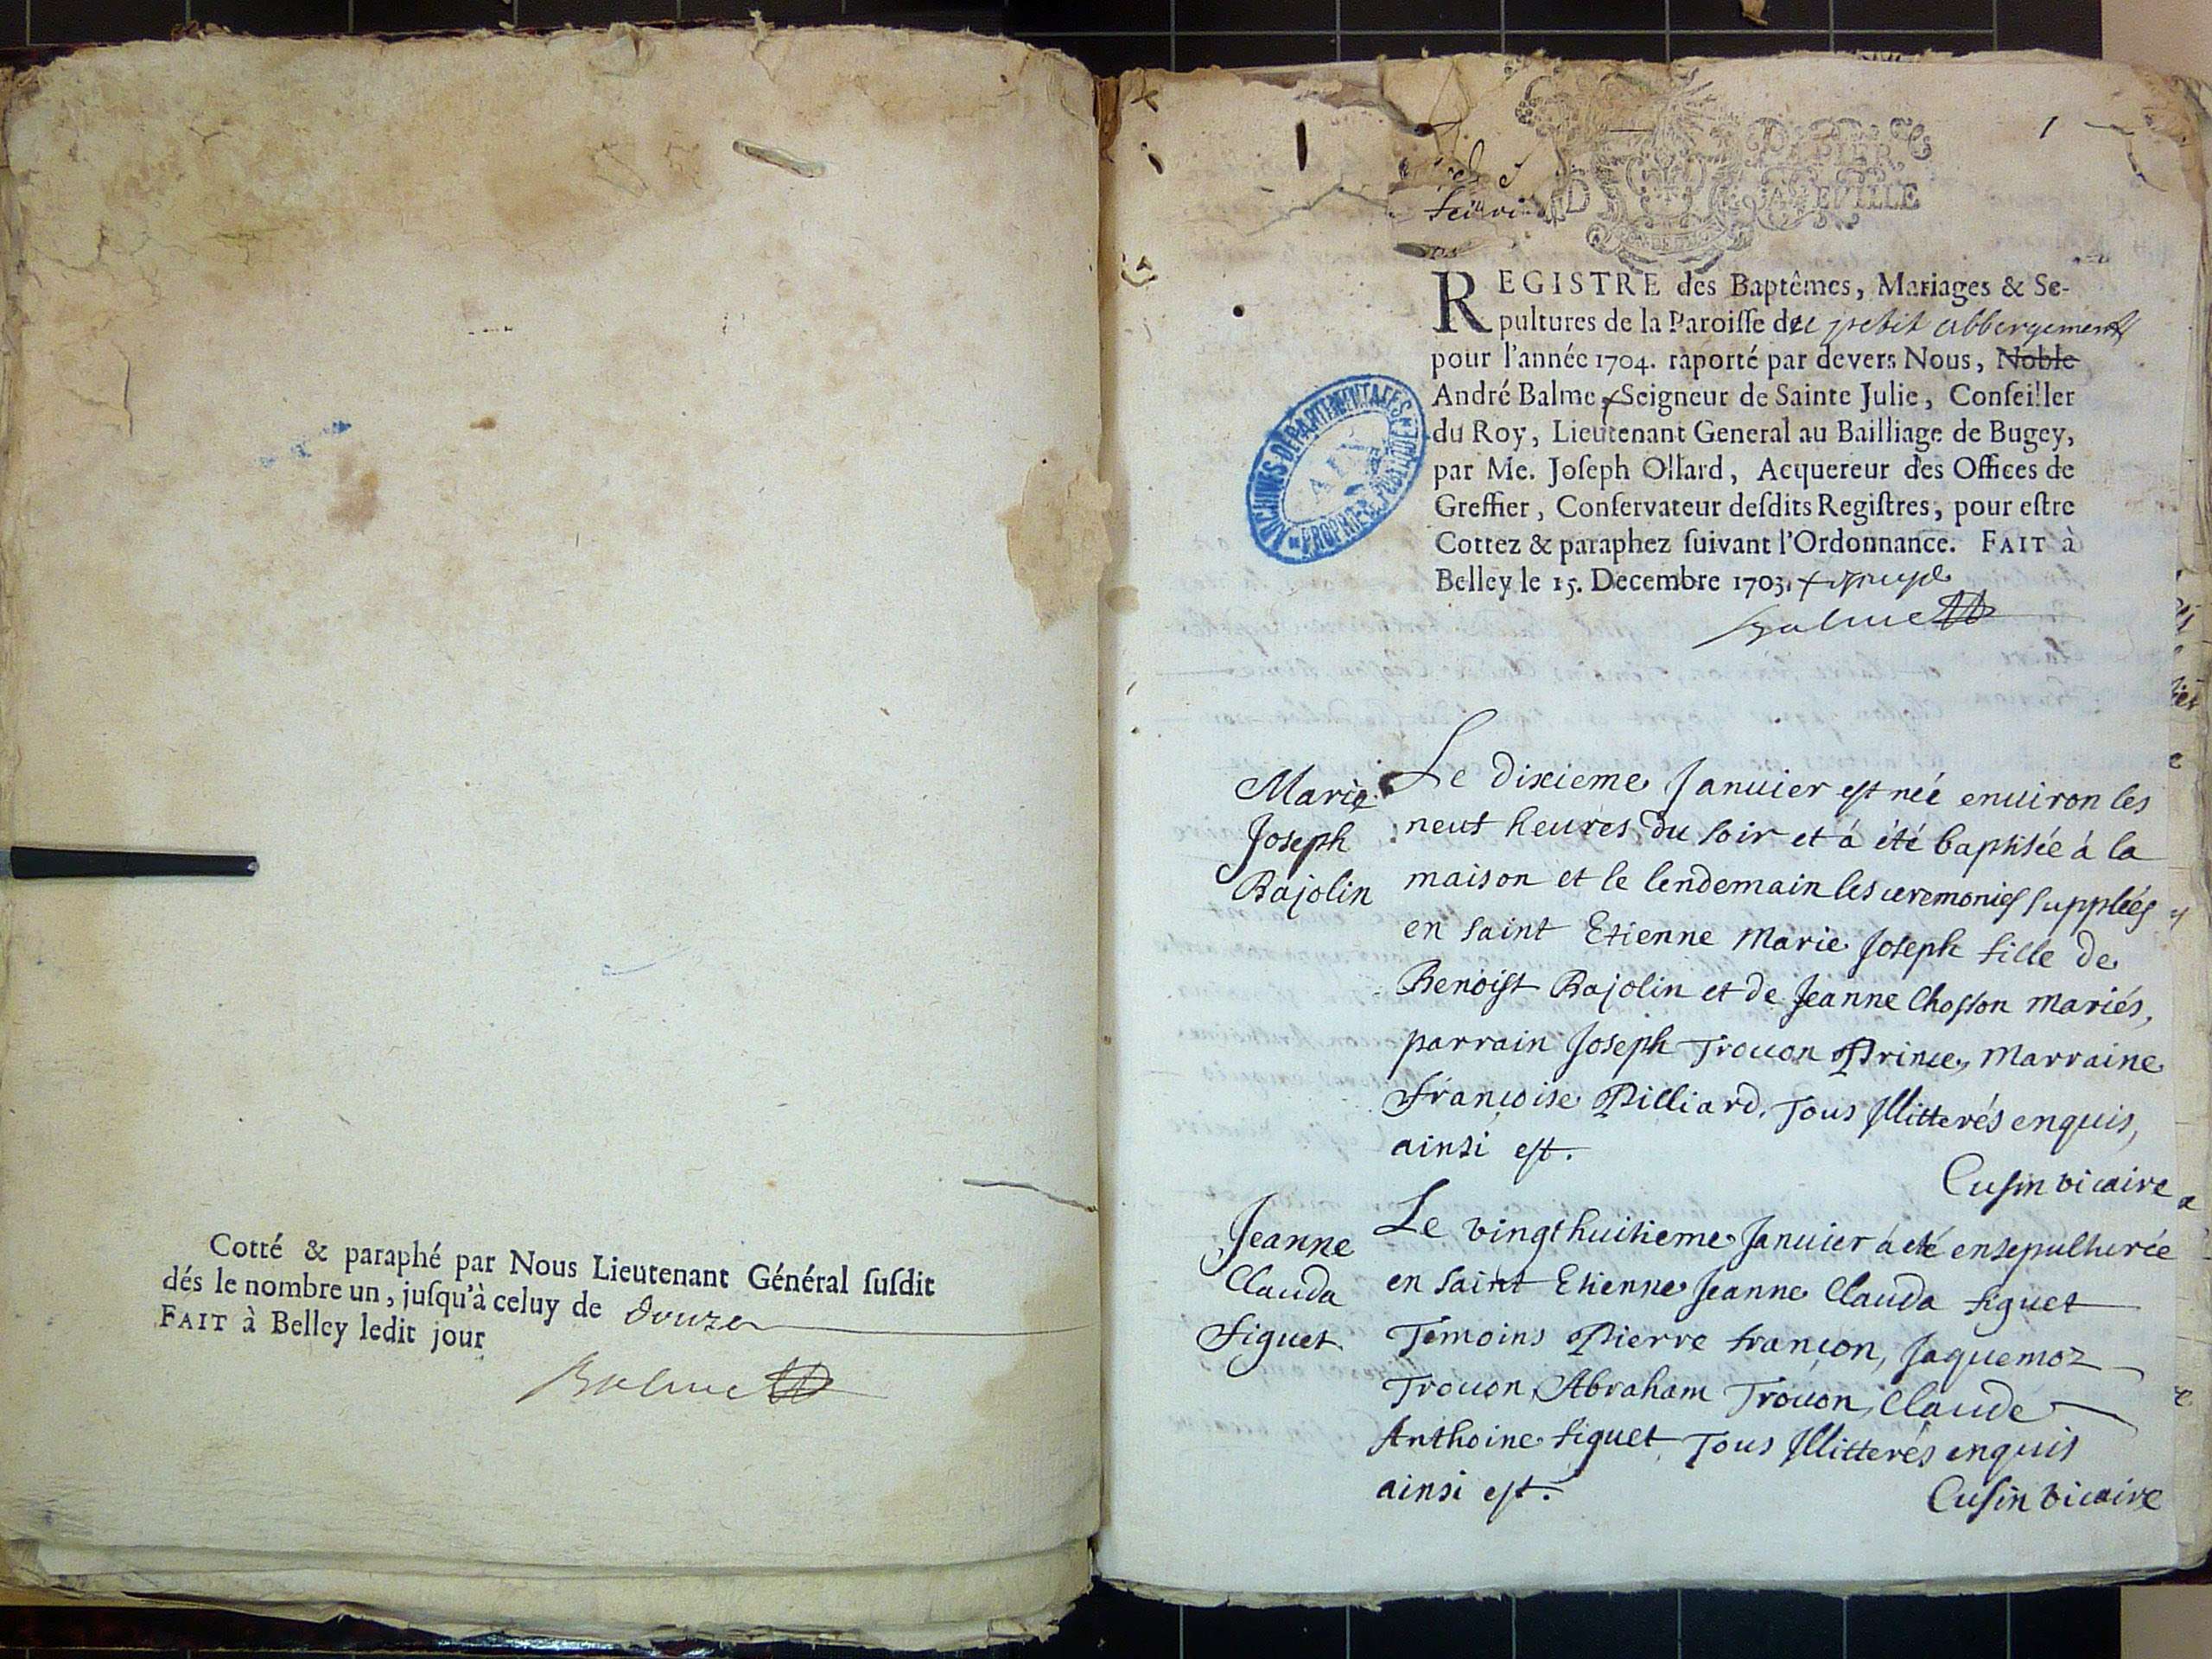 Cotté & paraphé par Nous Lieutenant Général ſuſdit
dés le nombre un, juſqu'à celuy de douze
FAIT à Belley ledit jour
Balme
1
PAPIER
DE LA VILLE
REGISTRE des Baptêmes, Mariages & Se-
pultures de la Paroiſſe du petit abbergement
pour l'année 1704. raporté par devers Nous, Noble
André Balme Seigneur de Sainte Julie, Conſeiller
du Roy, Lieutenant General au Bailliage de Bugey,
par Me. Joſeph Ollard, Acquereur des Offices de
Greffier, Conſervateur deſdits Regiſtres, pour eſtre
Cottez & paraphez ſuivant l'Ordonnance. FAIT à
Belley le 15. Decembre 1703.
Balme
ARCHIVES DEPARTEMENTALES
AIN
PROPRIETE PUBLIQUE
Marie
Joseph
Bajolin
Le dixieme Januier est née enuiron les
neuf heures du soir et á été baptisée à la
maison et le lendemain les ceremonies suppléés
en saint Etienne Marie Joseph fille de
Benoist Bajolin et de Jeanne Chosson mariés,
parrain Joseph Trouon Prince, Marraine
Françoise Billiard. Tous Illitterés enquis,
ainsi est.
Cusin vicaire
Jeanne
Clauda
figuet
Le vingthuitieme Januier á eté ensepulturée
en saint Etienne Jeanne Clauda figuet
Témoins Pierre françon, Jaquemoz
Trouon, Abraham Trouon, Claude
Anthoine figuet Tous Illitterés enquis
ainsi est.
Cusin vicaire